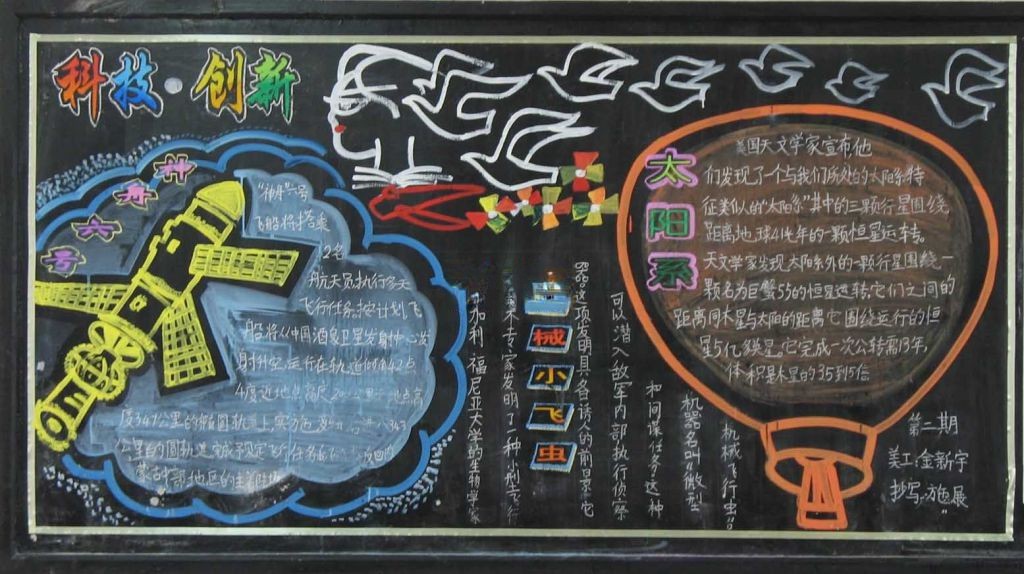 科技·创新
神舟六号
"神舟"六号
飞船将搭乘
2名
航天员执行多天
飞行任务,按计划,飞
船将从中国酒泉卫星发射中心发
射升空,运行在轨道倾角42点
4度近地点高度200 地点高
度347公里的椭圆轨道上,实施变 343
公里的圆轨道,完成预定飞行任务 返回
蒙古 地区的主
械小飞虫
于加利福尼亚大学的生物学家
专家发明了一种小型飞行
器。这项发明具备诱人的前景:它
可以潜入敌军内部执行侦察
和间谍任务。这种
机器名叫"微型
机械飞行虫"。
太阳系
美国天文学家宣布,他
们发现了一个与我们所处的太阳系特
征类似的"太阳系"其中的三颗行星围绕
距离地球41光年的一颗恒星运转。
天文学家发现太阳系外的一颗行星围绕一
颗名为巨蟹55的恒星运转,它们之间的
距离同木星与太阳的距离 它围绕运行的恒
星 亿 是,它完成一次公转需13年,
体积是木星的3.5到5倍
第二期
美工:金新宇
抄写:施展